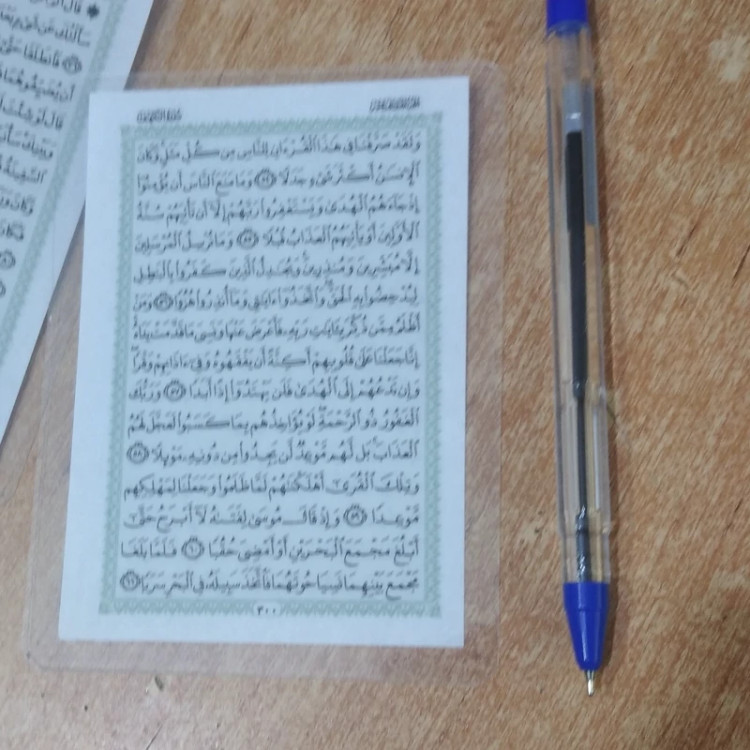 الجزء الخامس عشر
سورة الكهف
وَلَقَدْ صَرَّفْنَا فِي هَٰذَا الْقُرْءَانِ لِلنَّاسِ مِن كُلِّ مَثَلٍ وَكَانَ
الْإِنسَٰنُ أَكْثَرَ شَيْءٍ جَدَلًا ٥٤ وَمَا مَنَعَ النَّاسَ أَن يُؤْمِنُوا
إِذْ جَاءَهُمُ الْهُدَىٰ وَيَسْتَغْفِرُوا رَبَّهُمْ إِلَّا أَن تَأْتِيَهُمْ سُنَّةُ
الْأَوَّلِينَ أَوْ يَأْتِيَهُمُ الْعَذَابُ قُبُلًا ٥٥ وَمَا نُرْسِلُ الْمُرْسَلِينَ
إِلَّا مُبَشِّرِينَ وَمُنذِرِينَ وَيُجَٰدِلُ الَّذِينَ كَفَرُوا بِالْبَٰطِلِ
لِيُدْحِضُوا بِهِ الْحَقَّ وَاتَّخَذُوا ءَايَٰتِي وَمَا أُنذِرُوا هُزُوًا ٥٦ وَمَنْ
أَظْلَمُ مِمَّن ذُكِّرَ بِـَٔايَٰتِ رَبِّهِ فَأَعْرَضَ عَنْهَا وَنَسِيَ مَا قَدَّمَتْ يَدَاهُ
إِنَّا جَعَلْنَا عَلَىٰ قُلُوبِهِمْ أَكِنَّةً أَن يَفْقَهُوهُ وَفِي ءَاذَانِهِمْ وَقْرًا
وَإِن تَدْعُهُمْ إِلَى الْهُدَىٰ فَلَن يَهْتَدُوا إِذًا أَبَدًا ٥٧ وَرَبُّكَ
الْغَفُورُ ذُو الرَّحْمَةِ لَوْ يُؤَاخِذُهُم بِمَا كَسَبُوا لَعَجَّلَ لَهُمُ
الْعَذَابَ بَل لَّهُم مَّوْعِدٌ لَّن يَجِدُوا مِن دُونِهِ مَوْئِلًا ٥٨
وَتِلْكَ الْقُرَىٰ أَهْلَكْنَٰهُمْ لَمَّا ظَلَمُوا وَجَعَلْنَا لِمَهْلِكِهِم
مَّوْعِدًا ٥٩ وَإِذْ قَالَ مُوسَىٰ لِفَتَىٰهُ لَا أَبْرَحُ حَتَّىٰ
أَبْلُغَ مَجْمَعَ الْبَحْرَيْنِ أَوْ أَمْضِيَ حُقُبًا ٦٠ فَلَمَّا بَلَغَا
مَجْمَعَ بَيْنِهِمَا نَسِيَا حُوتَهُمَا فَاتَّخَذَ سَبِيلَهُ فِي الْبَحْرِ سَرَبًا ٦١
٣٠٠